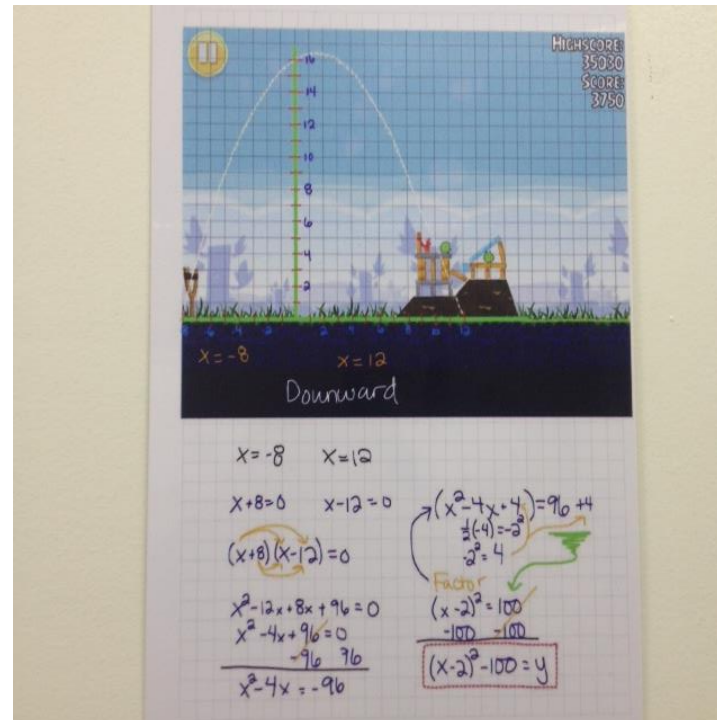 HIGHSCORE:
35030
SCORE:
3750
16
14
12
10
8
6
4
2
8 6 4 2 2 4 6 8 10 12
x=-8 x=12
Downward
x=-8 x=12
x+8=0 x-12=0
(x+8)(x-12)=0
x²-12x+8x+96=0
x²-4x+96=0
-96 96
x²-4x=-96
(x²-4x+4)=96+4
½(-4)=-2²
-2²=4
Factor
(x-2)²=100
-100 -100
(x-2)²-100=y